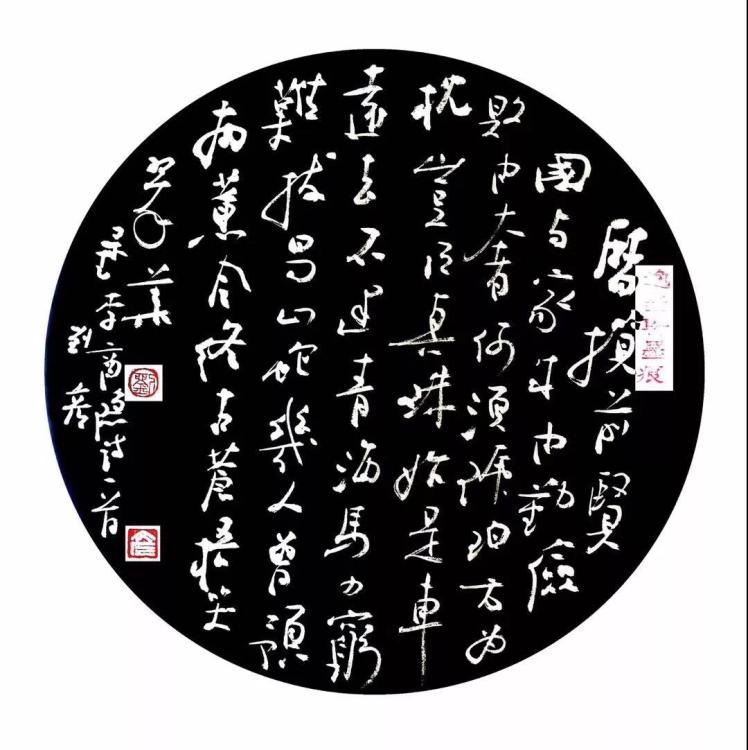 曆損前賢
國与家成由勤儉
敗由奢何須琥珀方为
枕豈得真珠始是車
遠去不逢青海馬力窮
難拔蜀山蛇幾人曾預
南薰今終古蒼梧哭
翠華
录李商隐诗一首
劉
墨痕